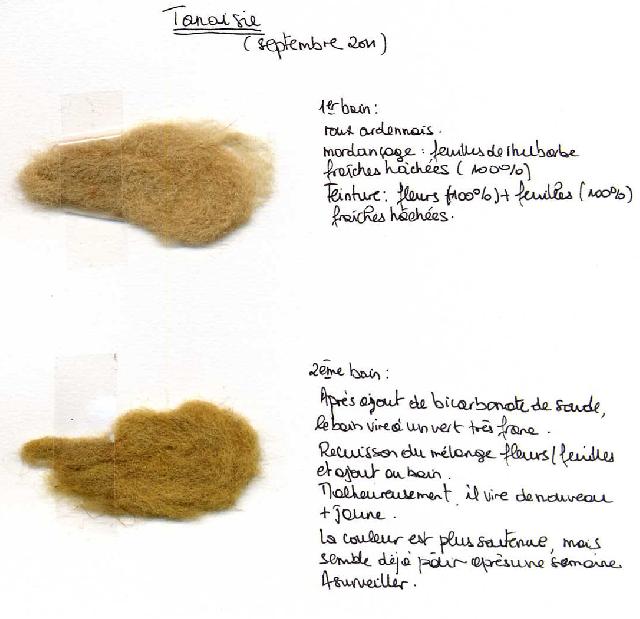 Tanaisie
(septembre 2011)
1er bain:
roux ardennais.
mordançage: feuilles de rhubarbe
fraîches hâchées (100%)
Teinture: fleurs (100%) + feuilles (100%)
fraîches hâchées.
2ème bain:
Après ajout de bicarbonate de soude,
le bain vire à un vert très franc.
Recuisson du mélange fleurs/feuilles
et ajout au bain.
Malheureusement, il vire de nouveau
+ jaune.
La couleur est plus soutenue, mais
semble déjà pâlir après une semaine
A surveiller.